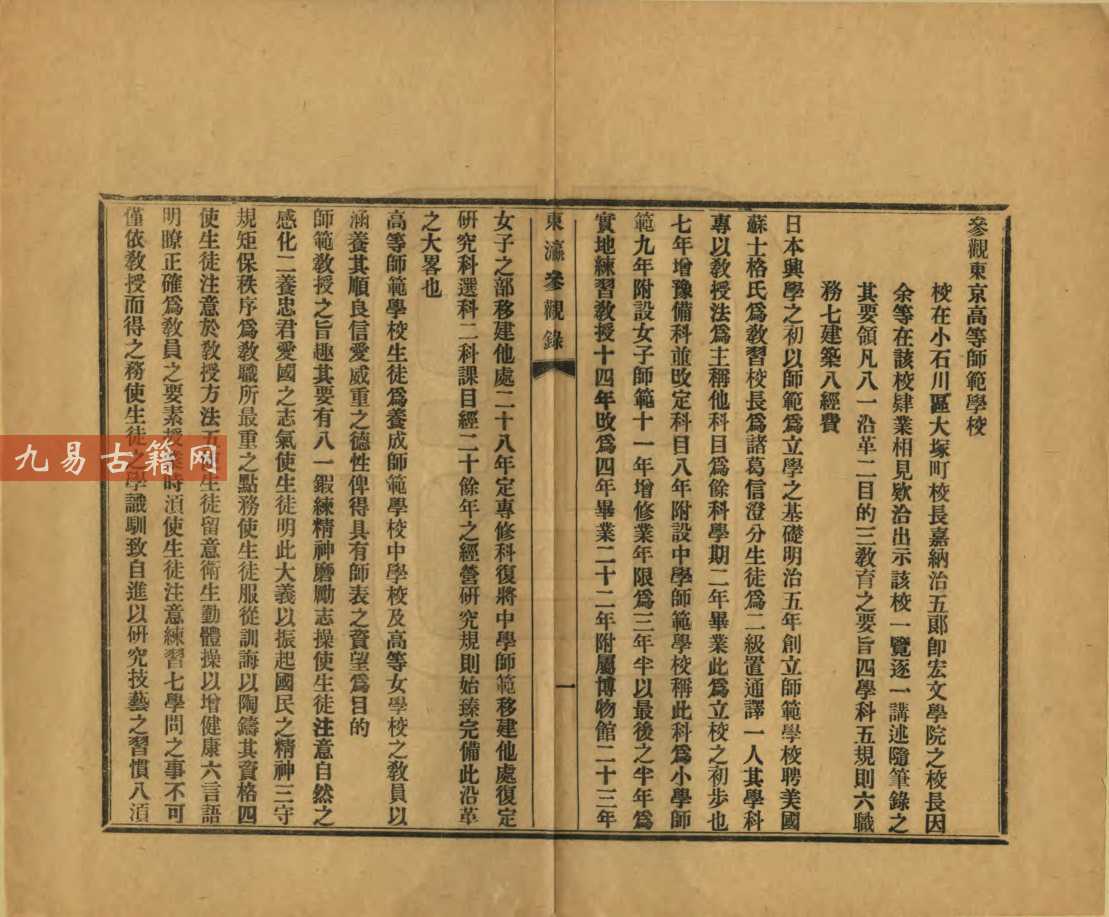 參觀東京高等師範學校
校在小石川區大塚町校長嘉納治五郞卽宏文學院之校長因
余等在該校肄業相見欵洽出示該校一覽逐一講述隨筆錄之
其要領凡八一沿革二目的三敎育之要旨四學科五規則六職
務七建築八經費
日本興學之初以師範爲立學之基礎明治五年創立師範學校聘美國
蘇士格氏爲敎習校長爲諸葛信澄分生徒爲二級置通譯一人其學科
專以敎授法爲主稱他科目爲餘科學期二年畢業此爲立校之初步也
七年增豫備科並改定科目八年附設中學師範學校稱此科爲小學師
範九年附設女子師範十一年增修業年限爲三年半以最後之半年爲
實地練習敎授十四年改爲四年畢業二十二年附屬博物館二十三年
東瀛參觀錄
一
女子之部移建他處二十八年定專修科復將中學師範移建他處復定
硏究科選科二科課目經二十餘年之經營硏究規則始臻完備此沿革
之大畧也
高等師範學校生徒爲養成師範學校中學校及高等女學校之敎員以
涵養其順良信愛威重之德性俾得具有師表之資望爲目的
師範敎授之旨趣其要有八一鍜練精神磨勵志操使生徒注意自然之
感化二養忠君愛國之志氣使生徒明此大義以振起國民之精神三守
規矩保秩序爲敎職所最重之點務使生徒服從訓誨以陶鑄其資格四
使生徒注意於敎授方法五生徒留意衛生勤體操以增健康六言語
明瞭正確爲敎員之要素授時須使生徒注意練習七學問之事不可
僅依敎授而得之務使生徒之學識馴致自進以硏究技藝之習慣八須
九易古籍网